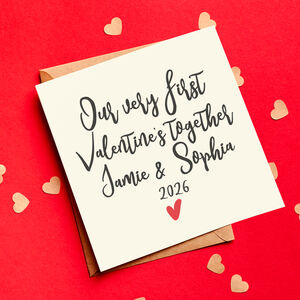 Our very first
Valentine's together
Jamie & Sophia
2026